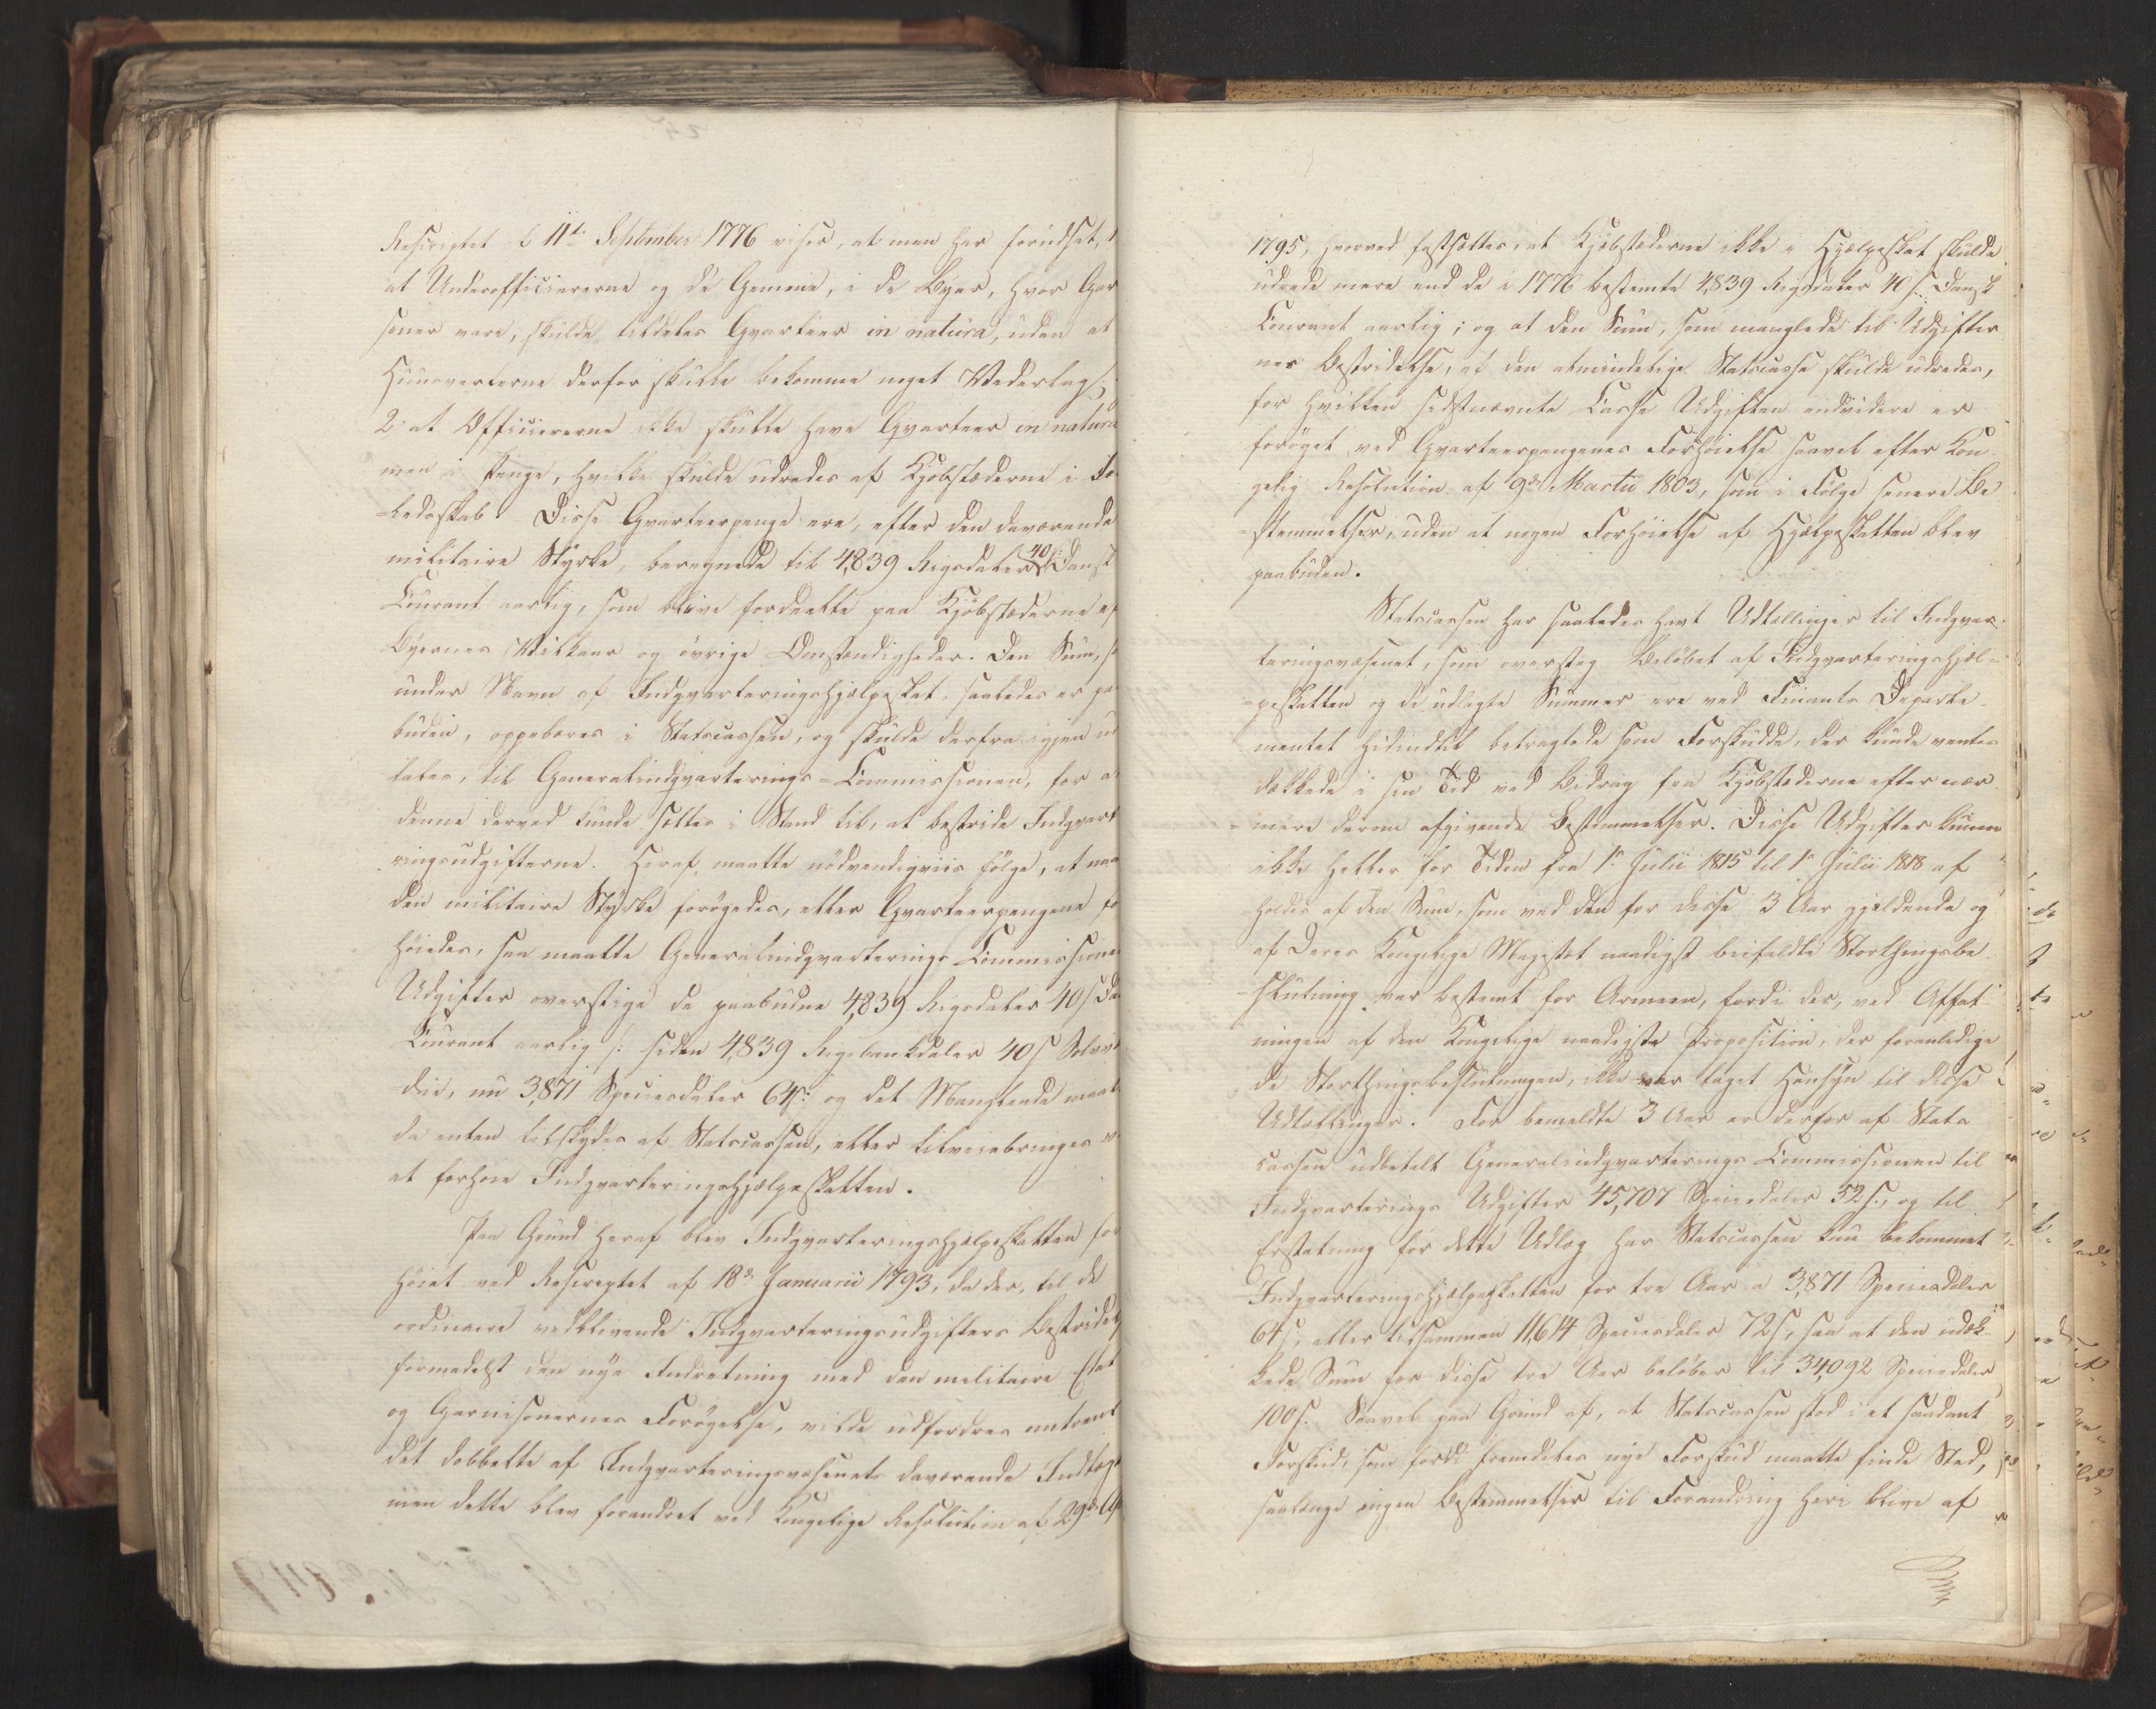 Rescriptet af 11te September 1776 viser, at man har forudsat,
at Underofficiererne og de Gemene, i de Byer, hvor Gar
soner vare, skulde tildeles Qvarteer in natura, uden at
Huusverterne derfor skulle bekomme noget Vederlag;
2: at Officiererne ikke skulle have Qvarteer in natura
men i Penge, hvilke skulde udredes af Kjøbstæderne i Fæ
-ledsskab. Disse Qvarteerpenge ere, efter den daværende
militaire Styrke, beregnede til 4,839 Rigsdaler 40 s: Dansk
Courant aarlig, som bleve fordeelte paa Kjøbstæderne ef
Byernes Vilkaar og øvrige Omstændigheder. Den Sum, so
under Navn af Indqvarteringshjælpeskat, saaledes er pa
buden, oppebæres i Statscassen, og skulde derfra igjen ud
tales, til Generalindqvarterings-Commissionen, for at
denne derved kunde sættes i Stand til, at bestride Indqvart
ringsudgifterne. Heraf maatte nødvendigviis følge, at naar
den militaire Styrke forøgedes, eller Qvarteerpengene fo
høiedes, saa maatte Generalindqvarterings Commissionens
Udgifter overstige de paabudne 4,839 Rigsdaler 40 s Da
Courant aarlig /: siden 4,839 Rigsbankdaler 40 s Sølvvæ
die, nu 3,871 Speciesdaler 64 s: og det Manglende maat
de enten tilskydes af Statscassen, eller tilveiebringes ve
at forhøie Indqvarteringshjælpeskatten.
Paa Grund heraf blev Indqvarteringshjælpeskatten for
høiet ved Rescriptet af 18de Januarii 1793, da der, til de
ordinaire vedblivende Indqvarteringsudgifters Bestridels
formedelst den nye Indretning med den militaire Etat
og Garnisonernes Forøgelse, vilde udfordres omtrent
det dobbelte af Indqvarteringsvæsenets daværende Indtægt
men dette blev forandret ved Kongelige Resolution af 29de Ap
1795, hvorved fastsættes, at Kjøbstæderne ikke i Hjælpeskat skulde
udrede mere end de i 1776 bestemte 4,839 Rigsdaler 40 s. Dansk
Courant aarlig; og at den Sum, som manglede til Udgifter
nes Bestridelse, af den almindelige Statscasse skulde udredes,
for hvilken sidstnævnte Casse Udgiften endvidere er
forøget ved Qvarteerpengenes Forhøielse saavel efter Kon
gelig Resolution af 9de Martii 1803, som i Følge senere Be
-stemmelser, uden at nogen Forhøielse af Hjælpeskatten blev
paabuden.
Statscassen har saaledes havt Udtællinger til Indqvar
teringsvæsenet, som oversteg Beløbet af Indqvarteringshjæl-
-peskatten og de udlagte Summer ere ved Finants Departe-
mentet hidindtil betragtede som Forskudde, der kunde ventes
dækkede i sin Tid ved Bidrag fra Kjøbstæderne efter nær
-mere derom afgivende Bestemmelser. Disse Udgifter kunne
ikke heller for Tiden fra 1ste Julii 1815 til 1ste Julii 1818 af
-holdes af den Sum, som ved den for disse 3 Aar gjeldende og
af Deres Kongelige Majestæt naadigst bifaldte Storthingsbe
-slutning var bestemt for Armeen, fordi der, ved Affat-
ningen af den Kongelige naadigste Proposition, der foranledige
de Storthingsbeslutningen, ikke var taget Hensyn til disse
Udtællinger. For bemeldte 3 Aar er derfor af Stats
cassen udbetalt Generalindqvarterings Commissionen til
Indqvarterings Udgifter 45,707 Speciesdaler 52 s., og til
Erstatning for dette Udlæg har Statscassen kun bekommet
Indqvarteringshjælpeskatten for tre Aar a 3,871 Speciesdaler
64 s, eller tilsammen 11,614 Speciesdaler 72 s, saa at den udæk-
kede Sum for disse tre Aar beløber til 34,092 Speciesdaler
100 s. Saavel paa Grund af, at Statscassen stod i et saadant
Forskud, som fordi fremdeles nye Forskud maatte finde Sted,
saalænge ingen Bestemmelser til Forandring heri blive af